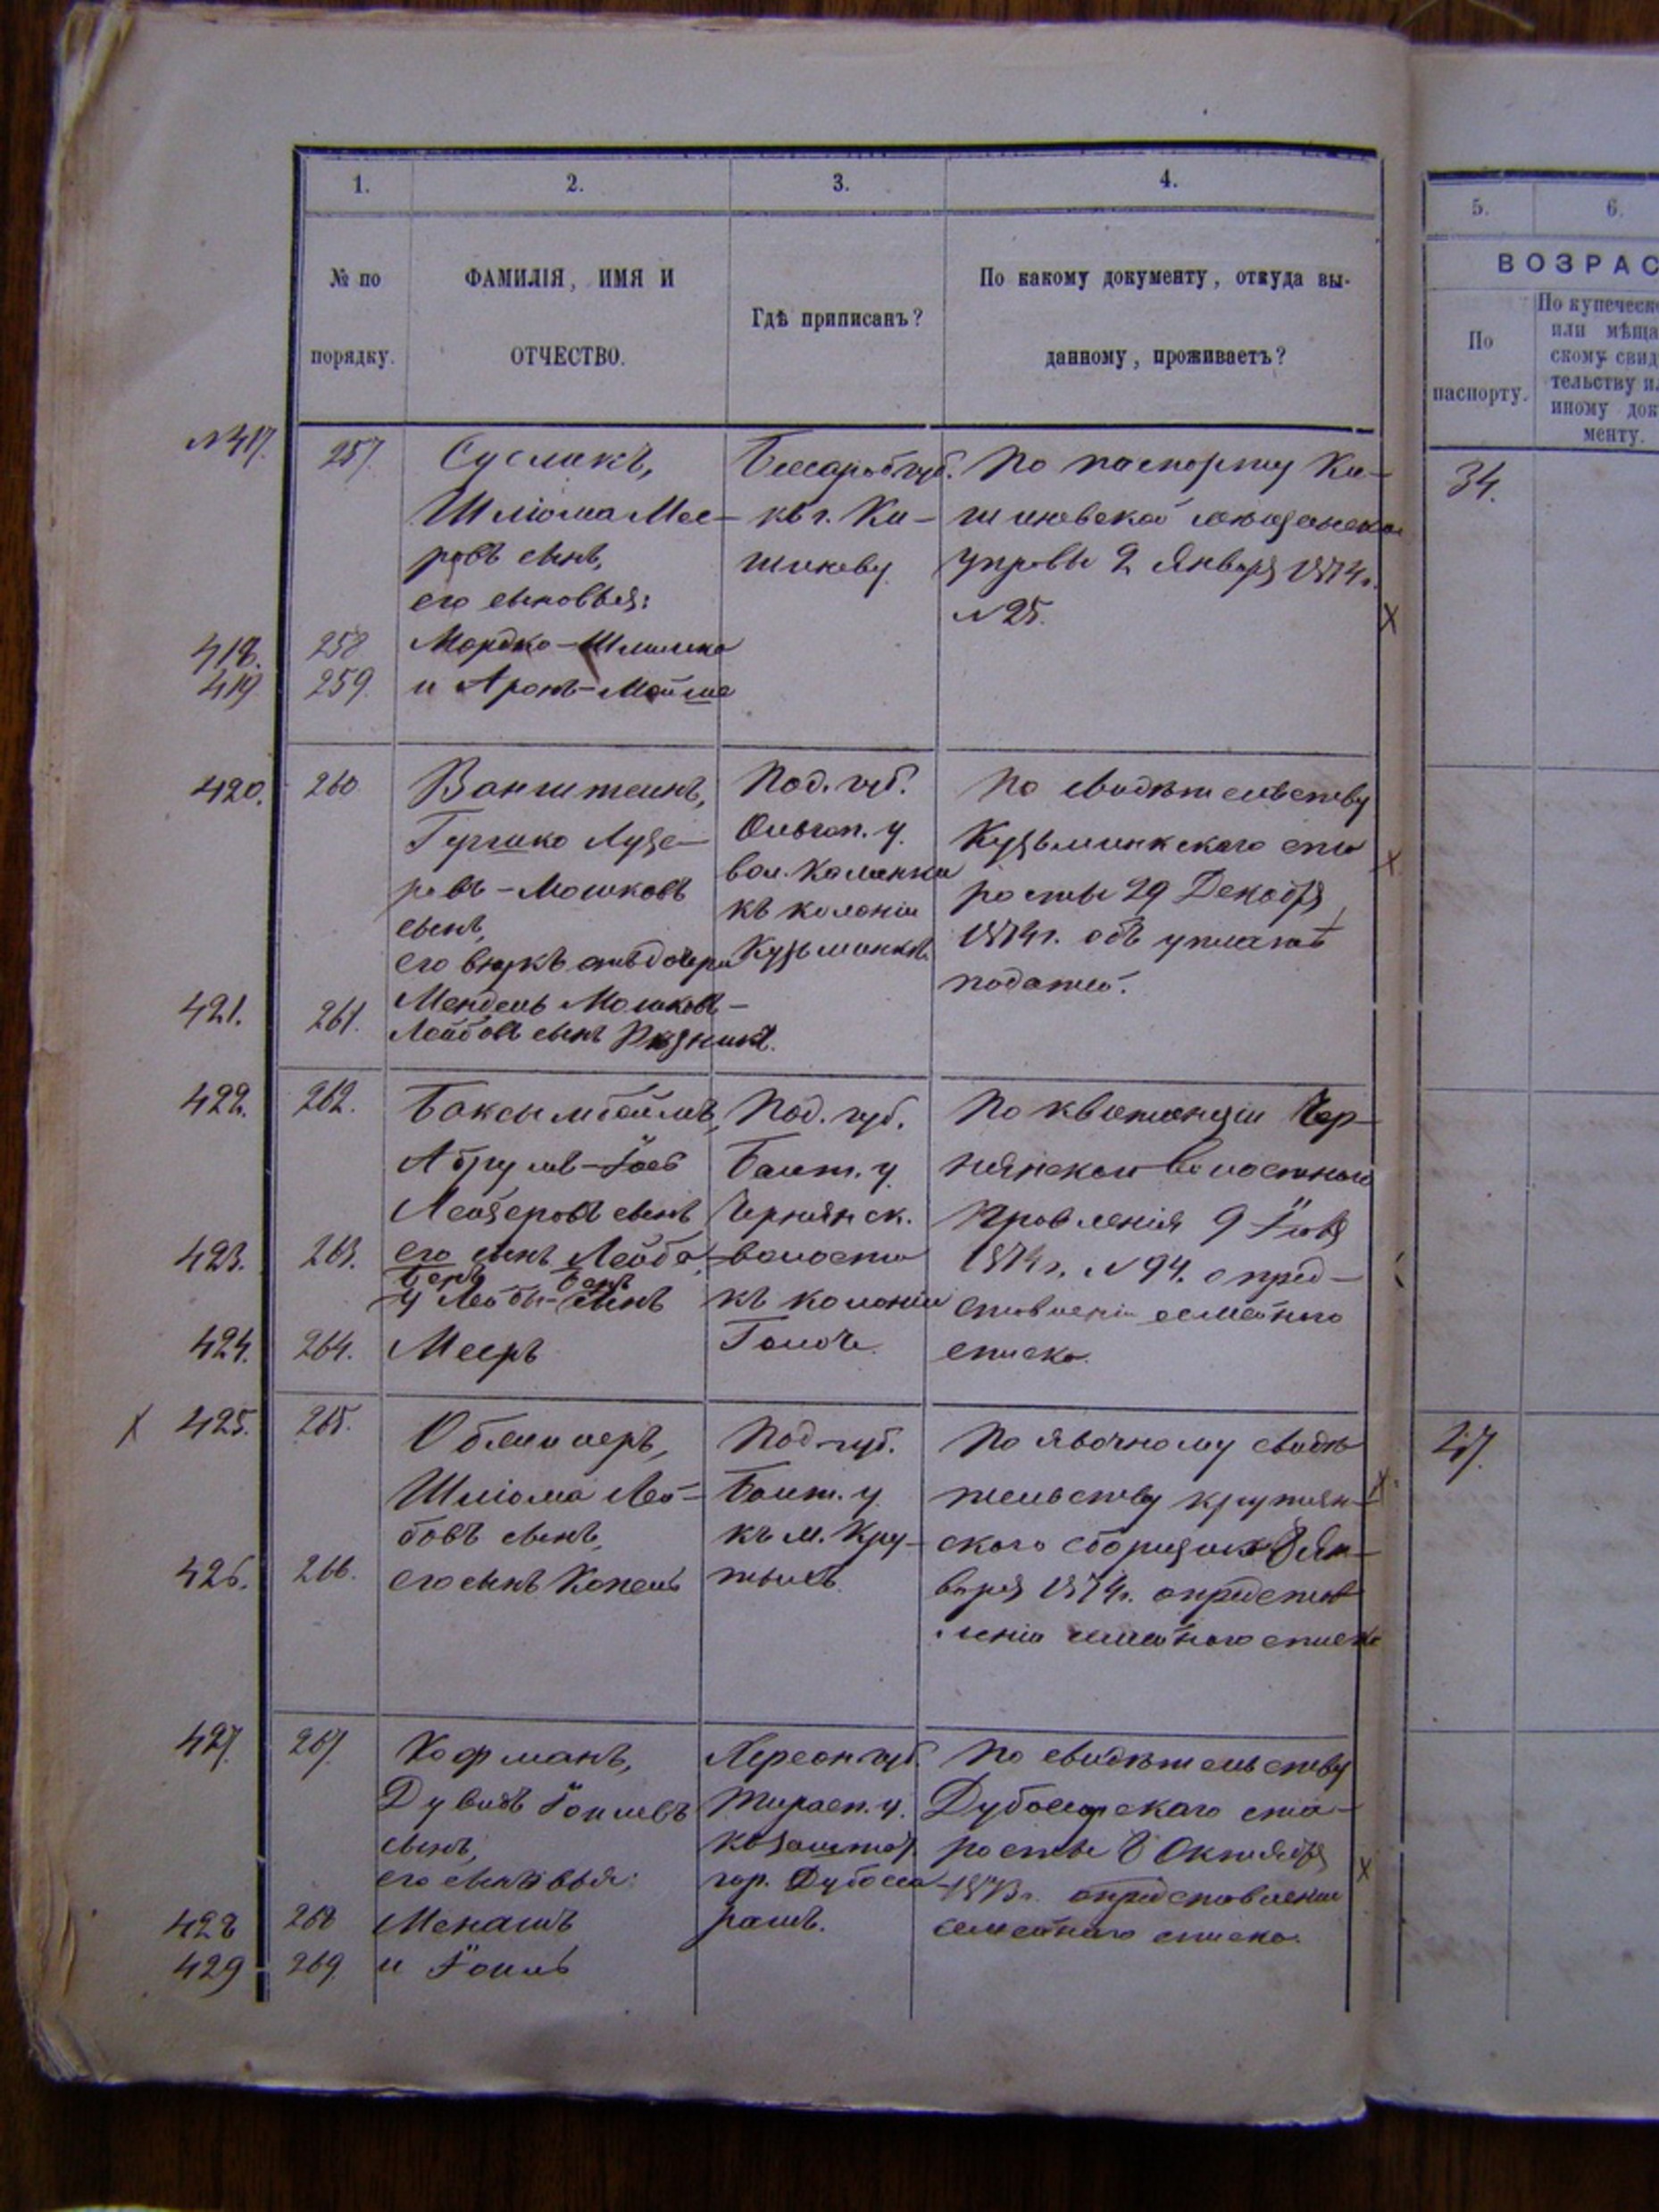 1.
2.
3.
4.
5.
6.
№ по
порядку.
ФАМИЛІЯ, ИМЯ И
ОТЧЕСТВО.
Гдѣ приписанъ?
По какому документу, откуда вы-
данному, проживаетъ?
ВОЗРАС
По
паспорту.
По купеческо
или мѣща
скому свид
тельству ил
иному док
менту.
№417.
257.
Сусликъ,
Шліома Мее-
ровъ сынъ,
его сыновья:
Бессараб. губ.
къ г. Ки-
шиневу
По паспорту Ки-
шиневской мѣщанской
управы 2 Января 1874 г.
№ 25.
34.
418.
258
Мордко-Шлиома
419
259.
и Аронъ-Мойше
420.
260
Ванштеинъ,
Гершко Лузе-
ровъ-Мошковъ
сынъ,
его внукъ отъ дочери
Под. губ.
Ольгоп. у.
вол. Каменки
къ колоніи
Кузьминкѣ
По свидѣтельству
Кузьминкскаго ста
росты 29 Декабря
1874 г. объ уплатѣ
податей.
421.
261.
Мендель Мошковъ-
Лейбовъ сынъ Рѣзникъ.
422.
262.
Абрумъ-Іосъ
Лейзеровъ сынъ
Под. губ.
Балт. у.
Чернянск.
волости
къ колоніи
По квитанціи Чер-
нянскаго Волостнаго
Правленія 9 Янв
1874 г. № 94. о пред-
ставленіи семейнаго
списка.
423.
263.
его сынъ Лейба
Беръ
у Лейбы-Беръ сынъ
424.
264.
Мееръ
425.
265.
Шліома Лей-
бовъ сынъ,
Под. губ.
Балт. у.
къ м. Кру-
тымъ
По явочному свидѣ
тельству крутян-
скаго сборщика 8 Ян-
варя 1874 г. о представ
леніи семейнаго списка
27.
426.
266.
его сынъ Копель
427.
267.
Кофманъ,
Дувидъ Іойлевъ
сынъ,
его сыновья:
Херсон. губ.
Тирасп. у.
къ заштат.
гор. Дубосса-
рамъ.
По свидѣтельству
Дубоссарскаго ста-
росты 8 Октября
1873 г. о представленіи
семейнаго списка.
428
268
Менашъ
429
269
и Іойль